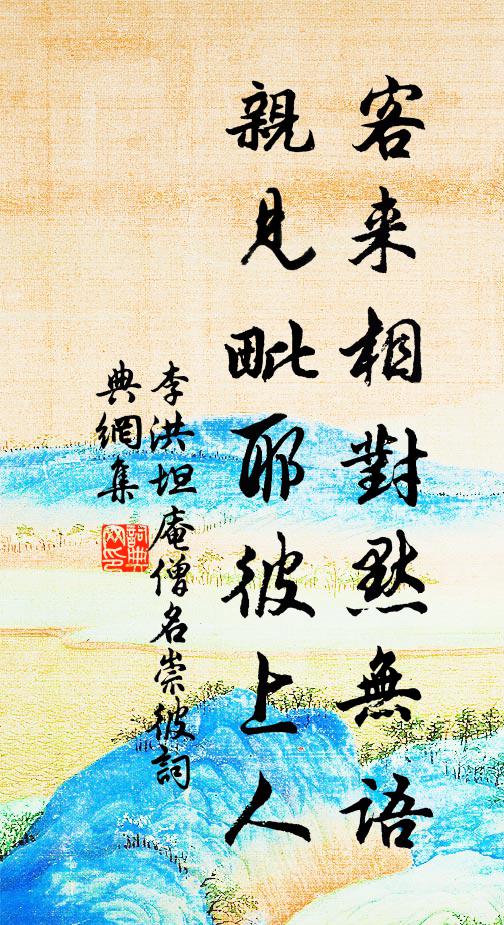 客来相對默無語
親見毗耶彼上人
李洪坦庵僧名崇彼詞
典網集